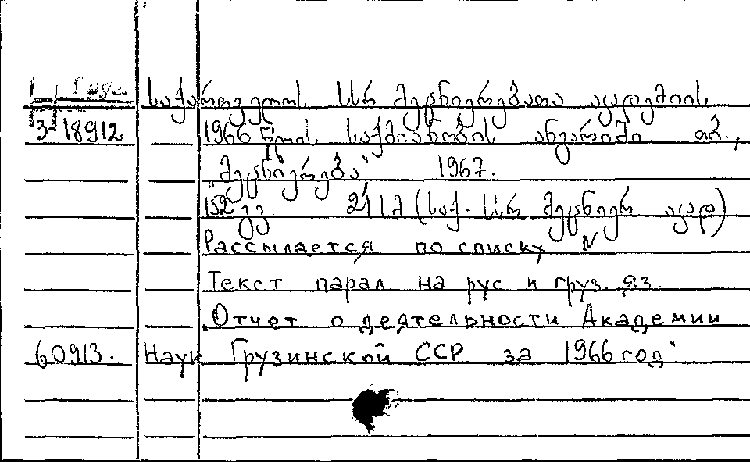 საქართველოს სსრ მეცნიერებათა აკადემიის
3-18912 1966 წლის საქმიანობის ანგარიში თბ.,
"მეცნიერება" 1967.
152 გვ 21 სმ (საქ. სსრ მეცნიერ აკად)
Рассылается по списку
Текст парал на рус и груз. яз
"Отчет о деятельности Академии
60913. Наук Грузинской ССР за 1966 год"